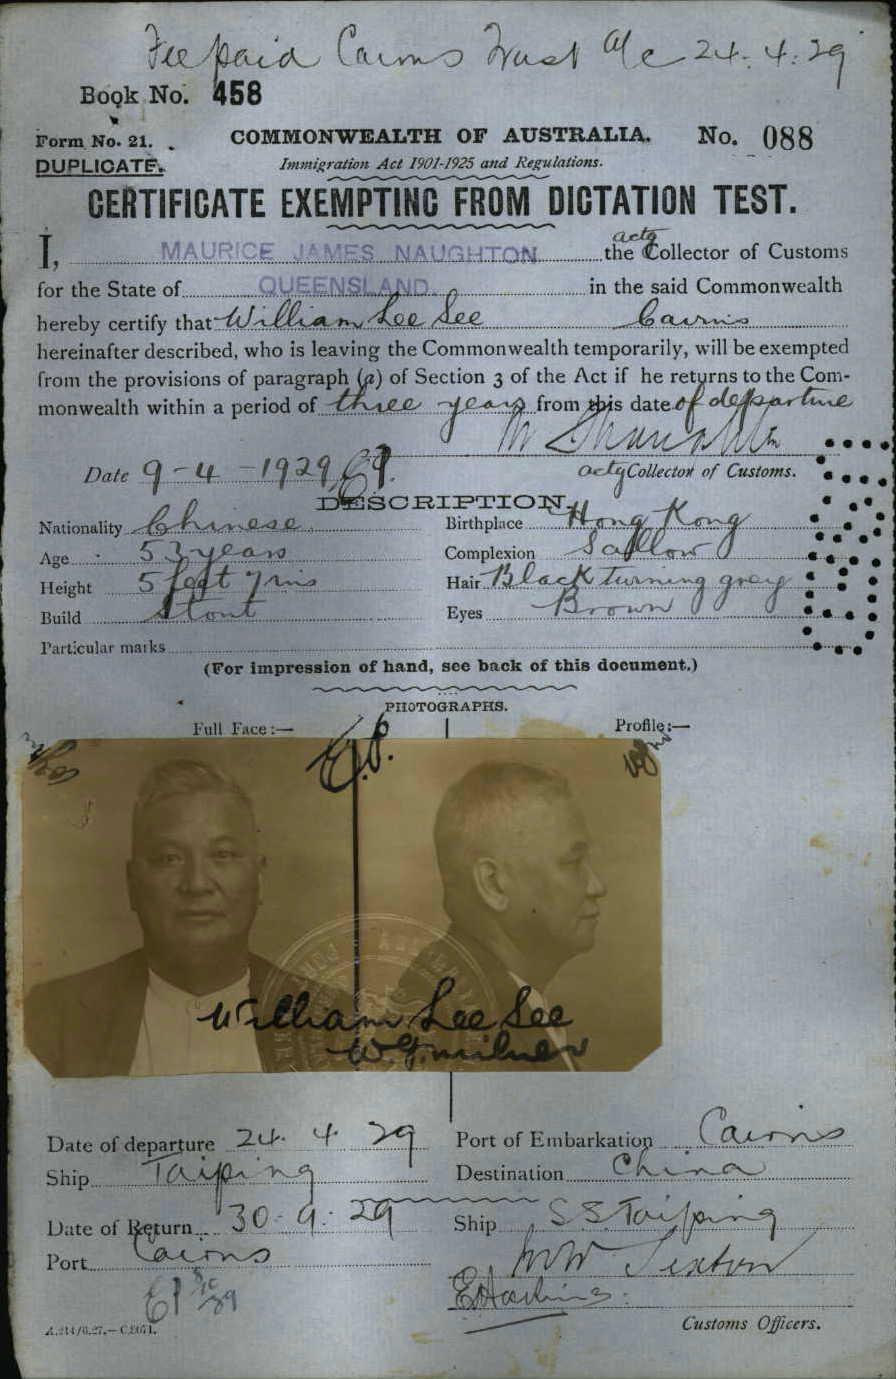 Fee paid Cairns Trust A/c 24.4.29
Book No. 458
Form No. 21. COMMONWEALTH OF AUSTRALIA. No. 088
DUPLICATE. Immigration Act 1901-1925 and Regulations.
CERTIFICATE EXEMPTING FROM DICTATION TEST.
I, MAURICE JAMES NAUGHTON the actg Collector of Customs
for the State of QUEENSLAND. in the said Commonwealth
hereby certify that William Lee See Cairns
hereinafter described, who is leaving the Commonwealth temporarily, will be exempted
from the provisions of paragraph (a) of Section 3 of the Act if he returns to the Com-
monwealth within a period of three years from this date of departure
Date 9-4-1929 actg Collector of Customs.
DESCRIPTION.
Nationality Chinese Birthplace Hong Kong
Age 53 years Complexion Sallow
Height 5 feet 7 ins Hair Black turning grey
Build Stout Eyes Brown
Particular marks
(For impression of hand, see back of this document.)
PHOTOGRAPHS.
Full Face:— Profile:—
William Lee See
W.G. Milner
Date of departure 24.4.29 Port of Embarkation Cairns
Ship Taiping Destination China
Date of Return 30-9-29 Ship S.S. Taiping
Port Cairns
Customs Officers.